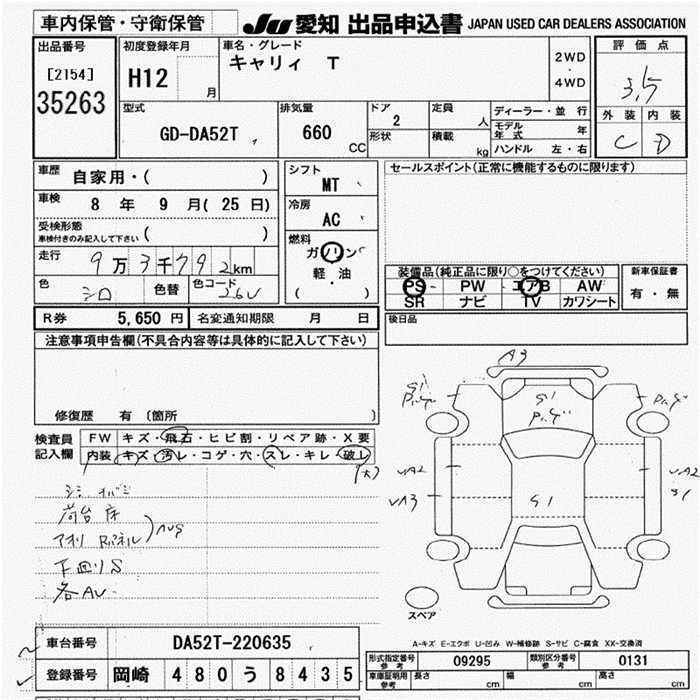 車内保管・守衛保管 JU 愛知 出品申込書 JAPAN USED CAR DEALERS ASSOCIATION
出品番号 初度登録年月 車名・グレード 評価点
[2154] H12 月 キャリィ T 2WD・4WD 3.5
35263
型式 排気量 ドア 定員 ディーラー・並行 外装 内装
GD-DA52T 660 CC 2 人 モデル年式 年 C D
形状 積載 kg ハンドル 左・右
車歴 自家用・( ) シフト MT セールスポイント(正常に機能するものに限ります)
車検 8 年 9 月( 25 日) 冷房 AC
受検形態 ( )
車検付きのみ記入して下さい
燃料 ガソリン
軽・油
( )
走行 9万3千792km
色 シロ 色替 色コード 26U
装備品(純正品に限り○をつけてください) 新車保証書
PS PW エアB AW 有・無
SR ナビ TV カワシート
R券 5,650 円 名変通知期限 月 日 後日品
注意事項申告欄(不具合内容等は具体的に記入して下さい)
修復歴 有 (箇所 )
検査員 FW キズ・飛石・ヒビ割・リペア跡・X要
記入欄 内装 キズ・汚レ・コゲ・穴・スレ・キレ・破レ
(大)
A3
S1
S1
UA2 UA2
UA3 S1
S1
荷台 床
下回りS
各AU
スペア
A-キズ E-エクボ U-凹み W-補修跡 S-サビ C-腐食 XX-交換済
車台番号 DA52T-220635
登録番号 岡崎 480 う 8435
形式指定番号 参考 09295 類別区分番号 参考 0131
車庫証明用 参考 長さ cm 幅 cm 高さ cm